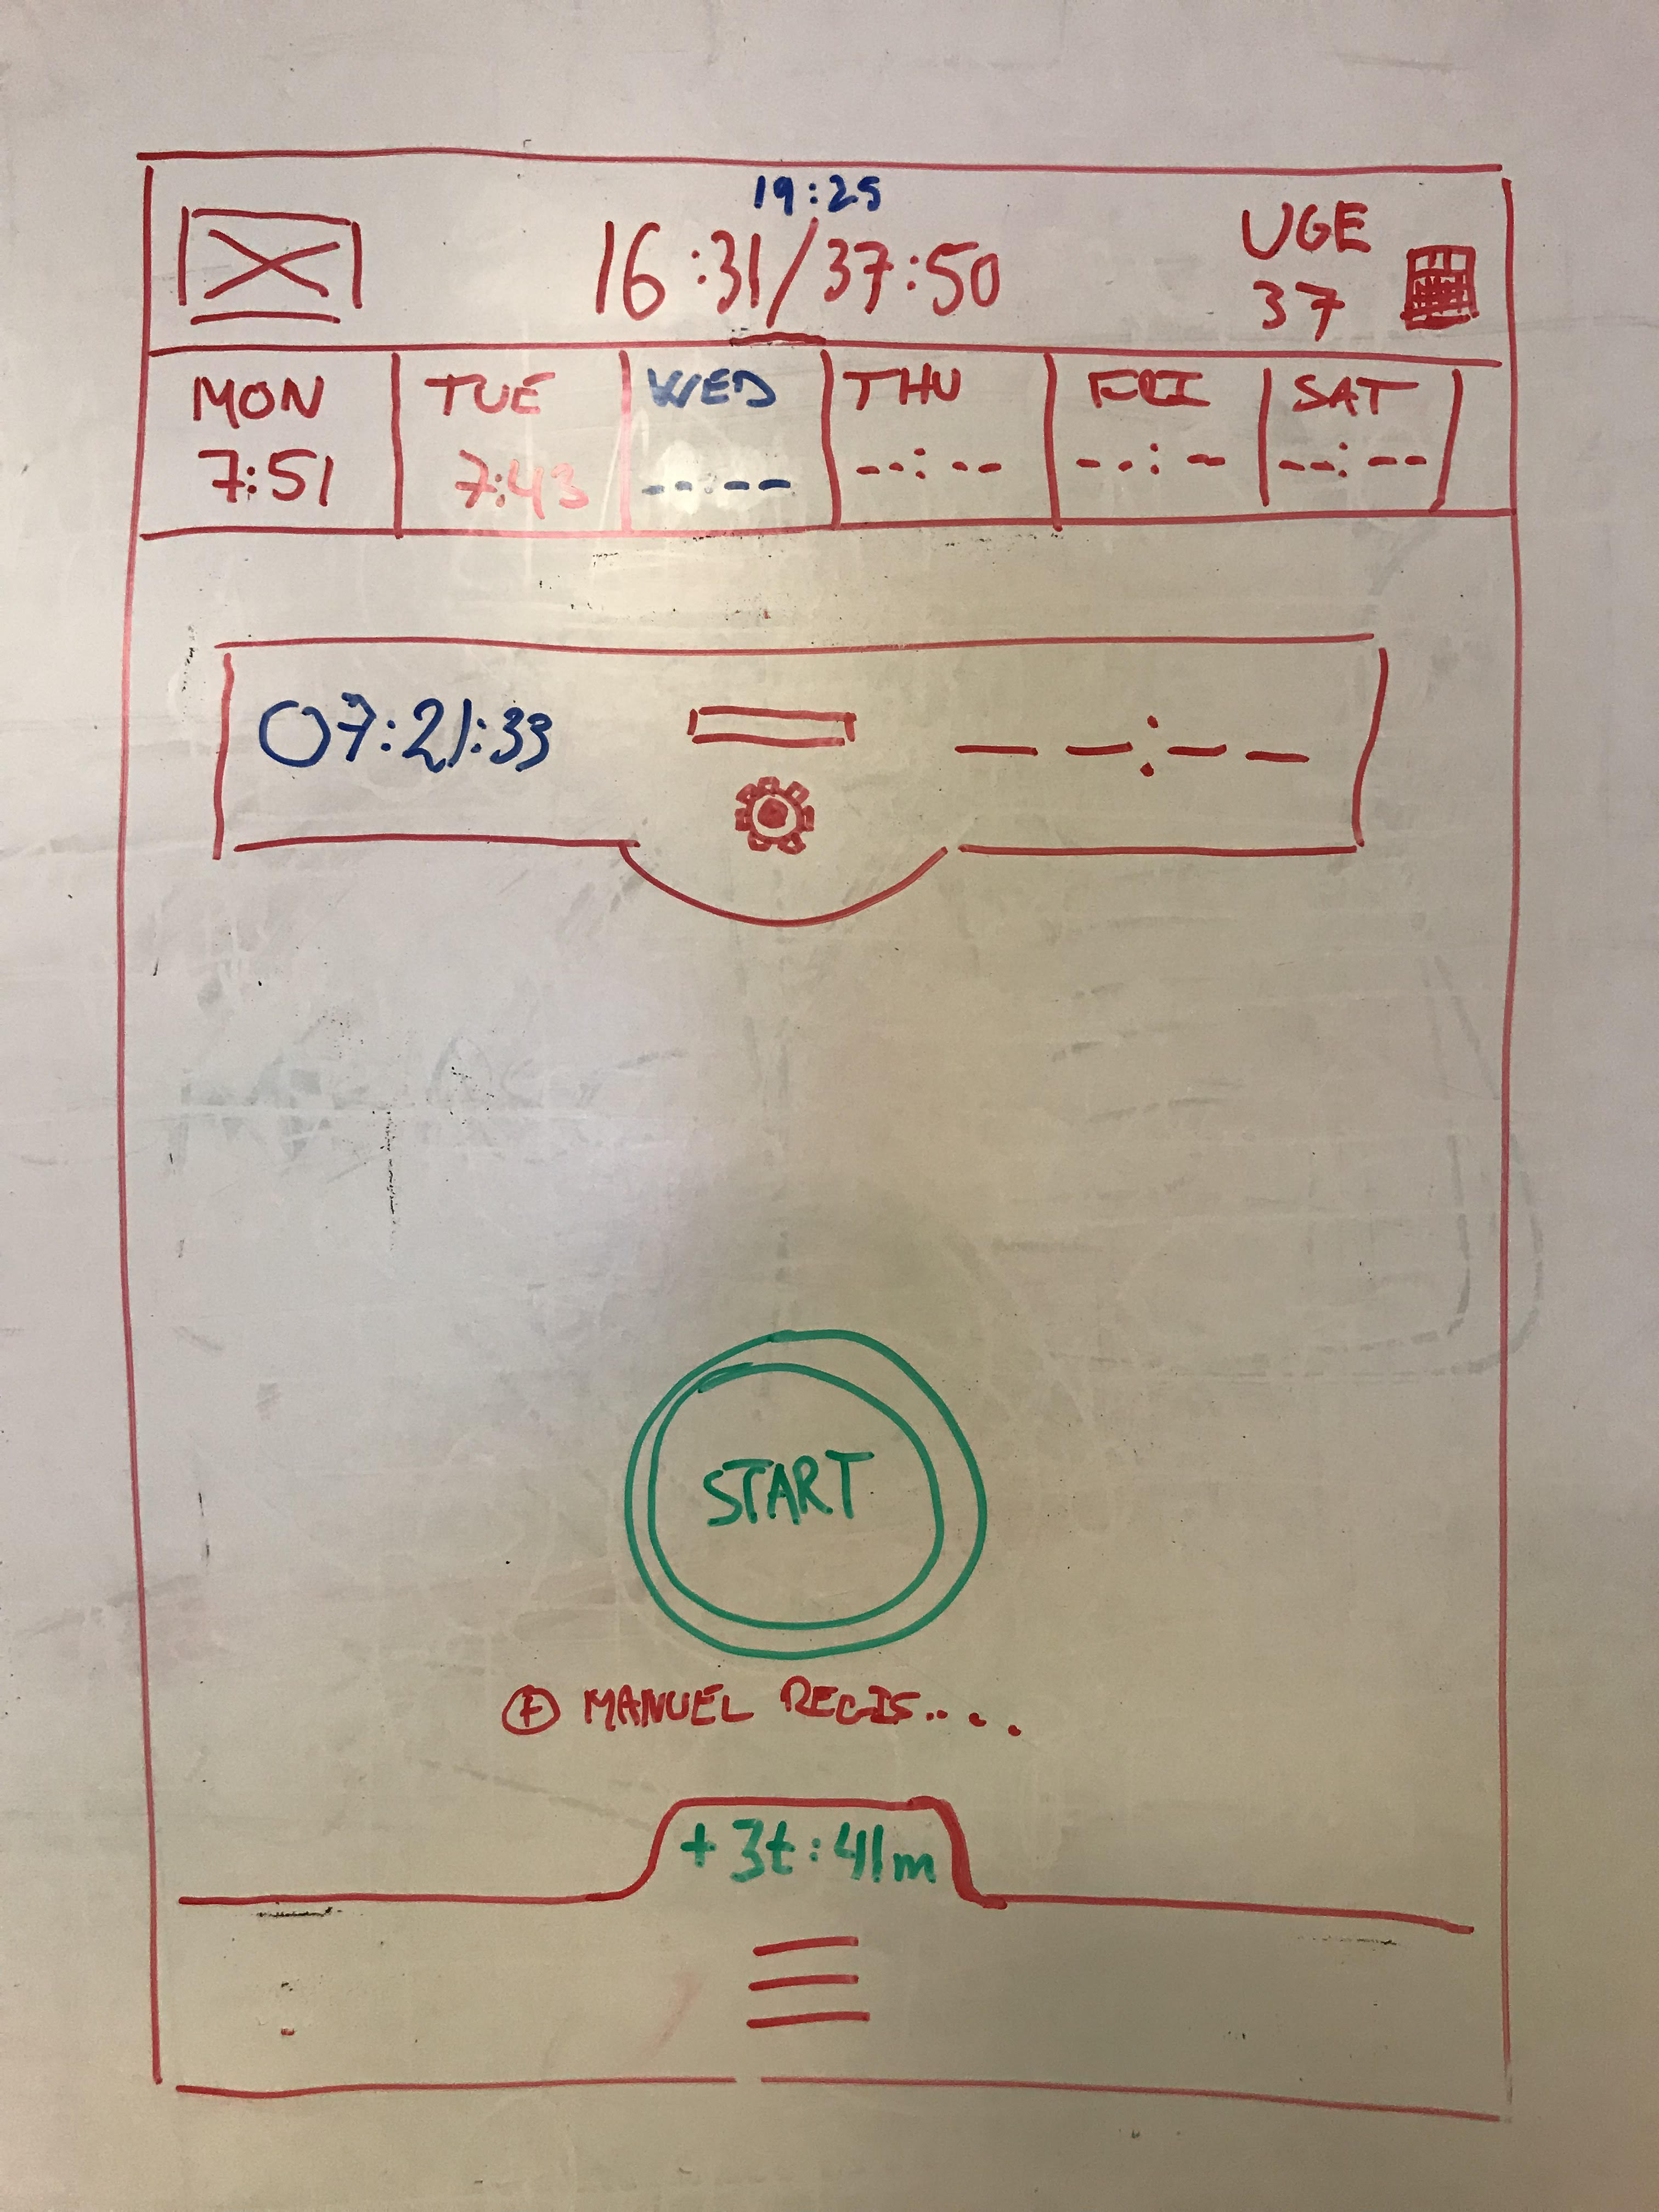 19:25
16:31/37:50
UGE
37
MON TUE WED THU FRI SAT
7:51 7:43 --:-- --:-- --:-- --:--
07:21:33 --:--
START
+ MANUEL REGIS.....
+3t:41m